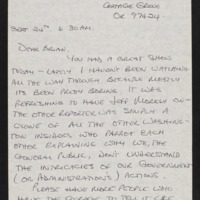 COTTAGE GROVE
OR 97424.
SEPT 24TH 6.30AM.
DEAR BRIAN,
YOU HAD A GREAT SHOW
TODAY - LATELY I HAVEN'T BEEN WATCHING
ALL THE WAY THROUGH BECAUSE MOSTLY
ITS BEEN PRETTY BORING. IT WAS
REFRESHING TO HAVE JEFF ON -
THE OTHER REPORTER WAS SIMPLY A
CLONE OF ALL THE OTHER WASHING-
TON INSIDERS WHO PARROT EACH
OTHER EXPLAINING WHY WE, THE
GENERAL PUBLIC, DON'T UNDERSTAND
THE INTRICACIES OF OUR GOVERNMENT
(OR ADMINISTRATIONS) ACTIONS.
PLEASE HAVE MORE PEOPLE WHO
HAVE THE COURAGE TO TELL IT LIKE